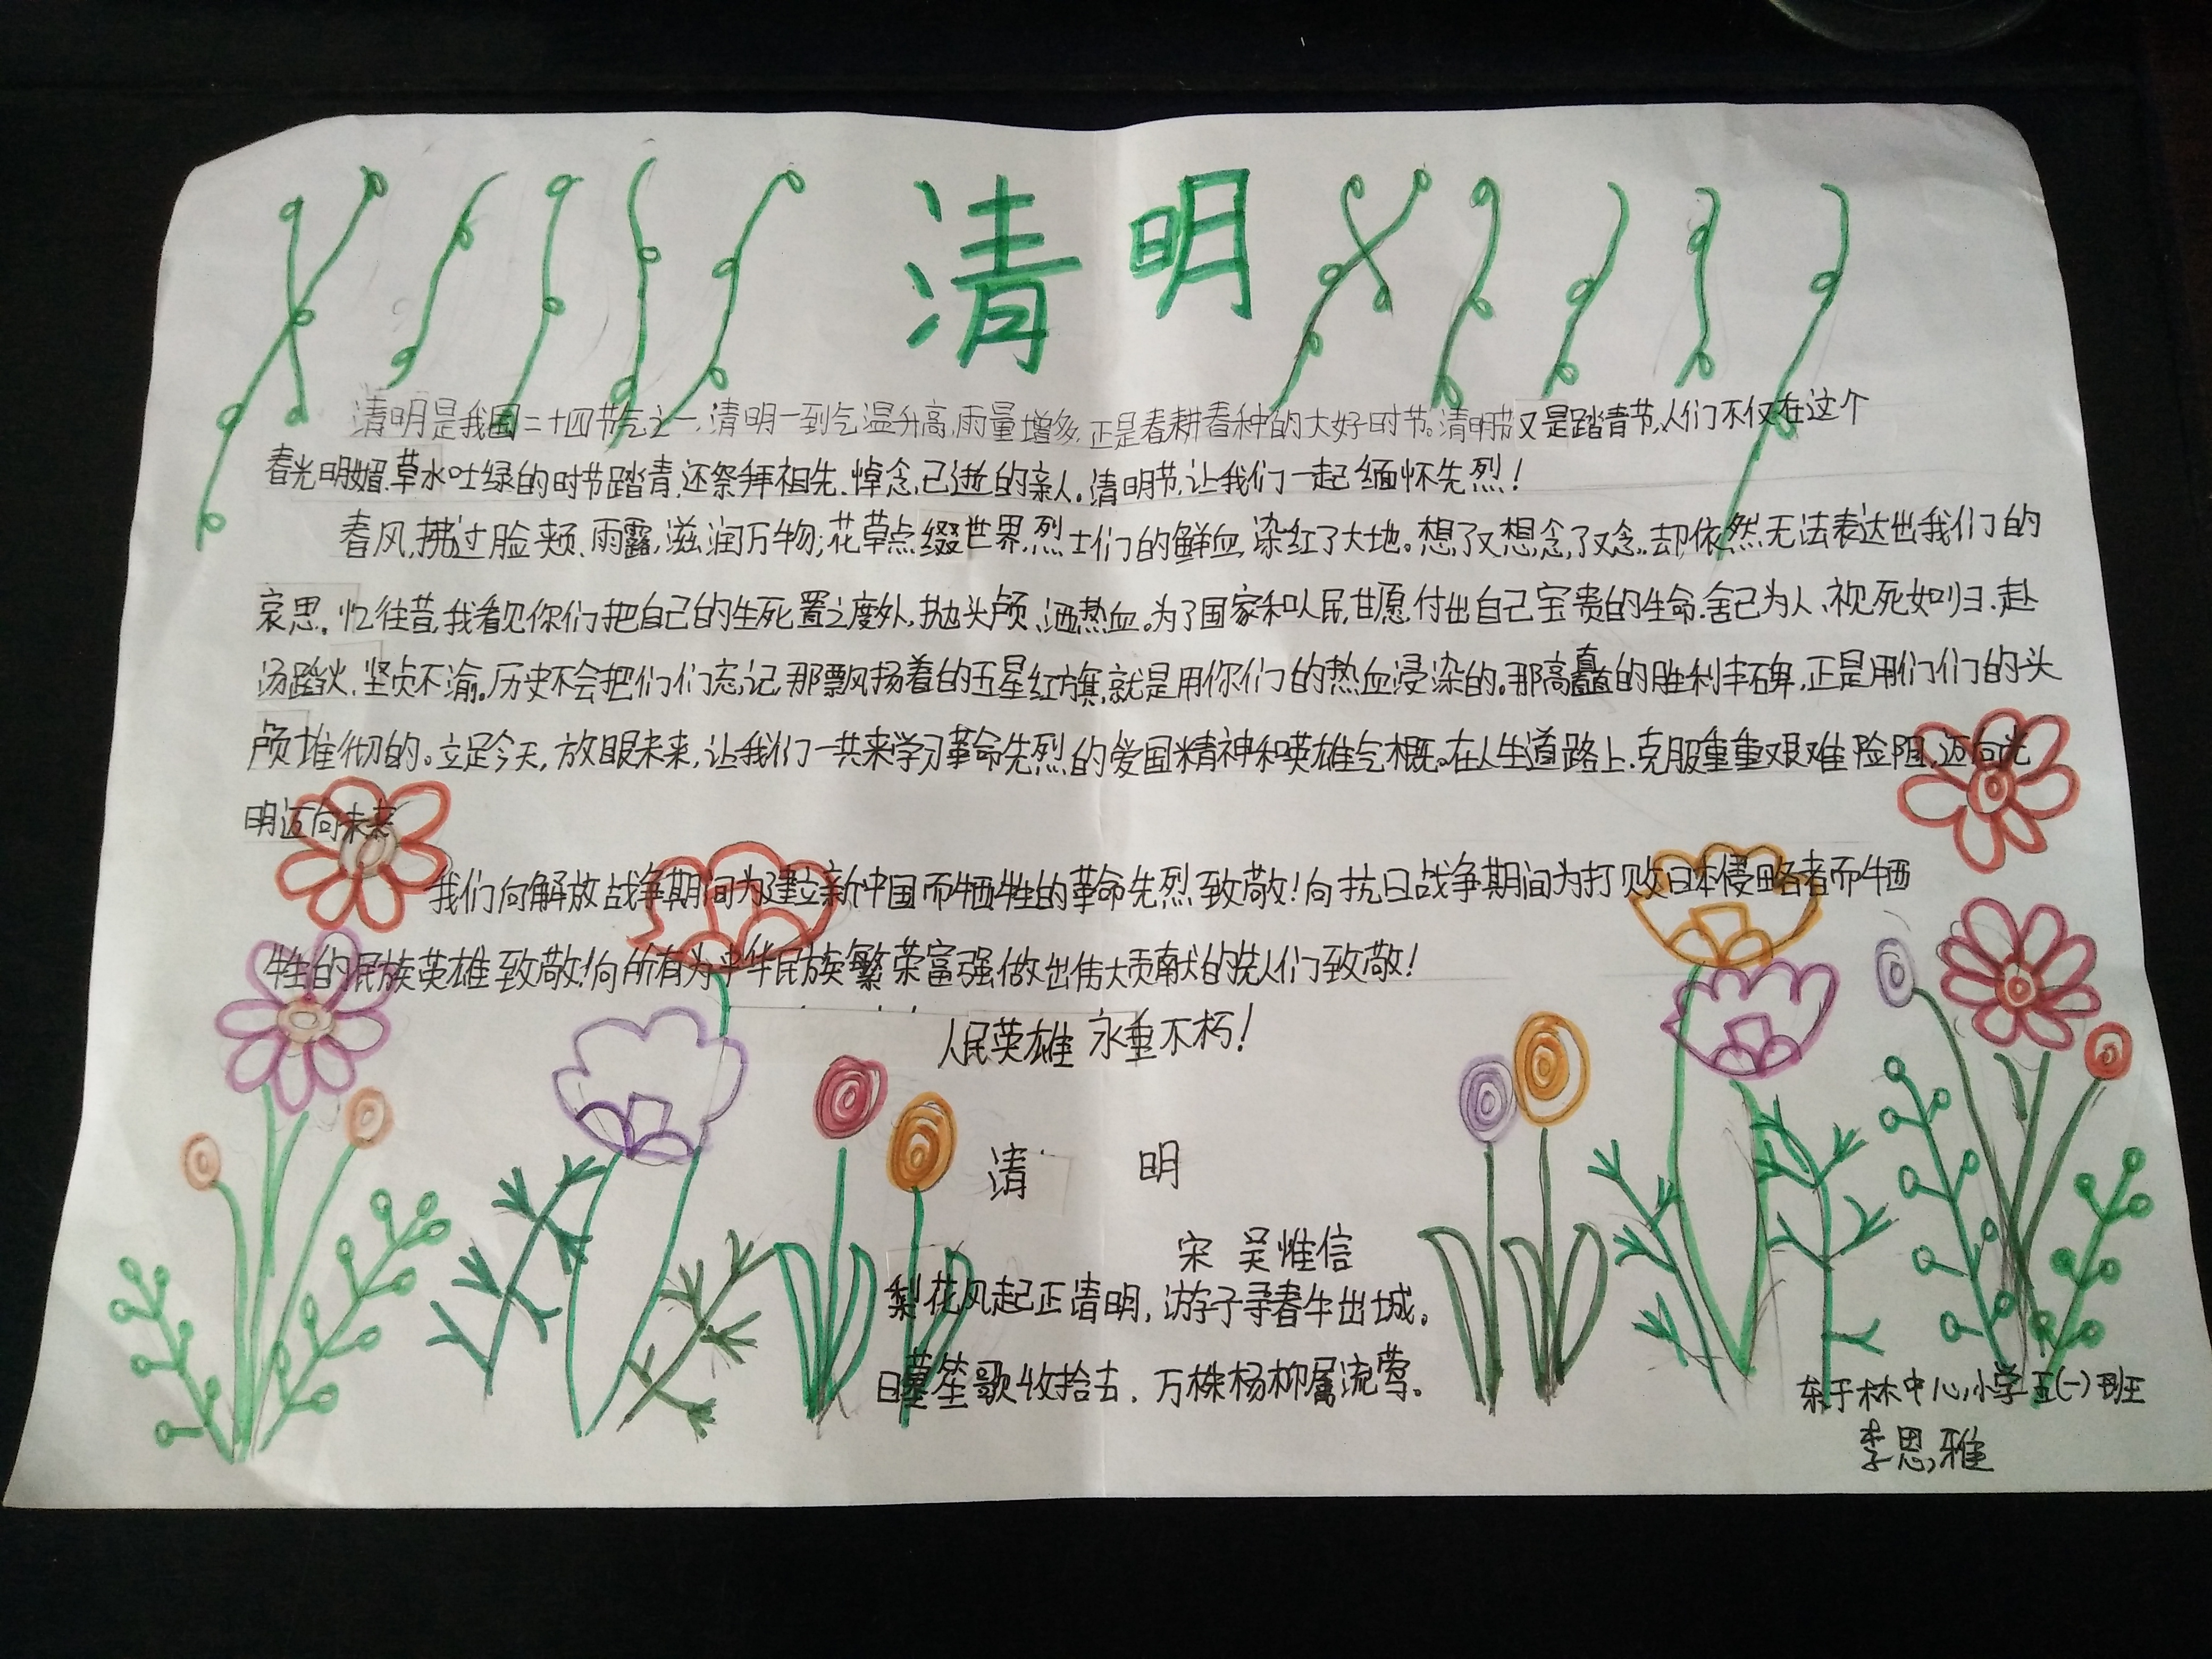 清明
清明是我国二十四节气之一,清明一到气温升高,雨量增多,正是春耕春种的大好时节。清明节又是踏青节,人们不仅在这个
春光明媚.草水吐绿的时节踏青,还祭拜祖先、悼念已逝的亲人。清明节,让我们一起缅怀先烈!
春风,拂过脸颊、雨露,滋润万物;花草点缀世界,烈士们的鲜血,染红了大地。想了又想,念了又念..却依然无法表达出我们的
哀思。忆往昔,我看见你们把自己的生死置之度外,抛头颅、洒热血。为了国家和人民,甘愿付出自己宝贵的生命.舍己为人、视死如归.赴
汤蹈火,坚贞不渝。历史不会把们们忘记,那飘扬着的五星红旗,就是用你们的热血浸染的。那高矗的胜利丰碑,正是用们们的头
颅堆彻的。立足今天,放眼未来,让我们一共来学习革命先烈的爱国精神和英雄气概。在人生道路上.克服重重艰难险阻,迈向光
明迈向未来
我们向解放战争期间为建立新中国而牺牲的革命先烈致敬!向抗日战争期间为打败日本侵略者而牺
牲的民族英雄致敬!向所有为中华民族繁荣富强做出伟大贡献的先人们致敬!
人民英雄 永垂不朽!
清 明
宋 吴惟信
梨花风起正清明,游子寻春半出城。
日暮笙歌收拾去,万株杨柳属流莺。
东于林中心小学五(一)班
李思雅